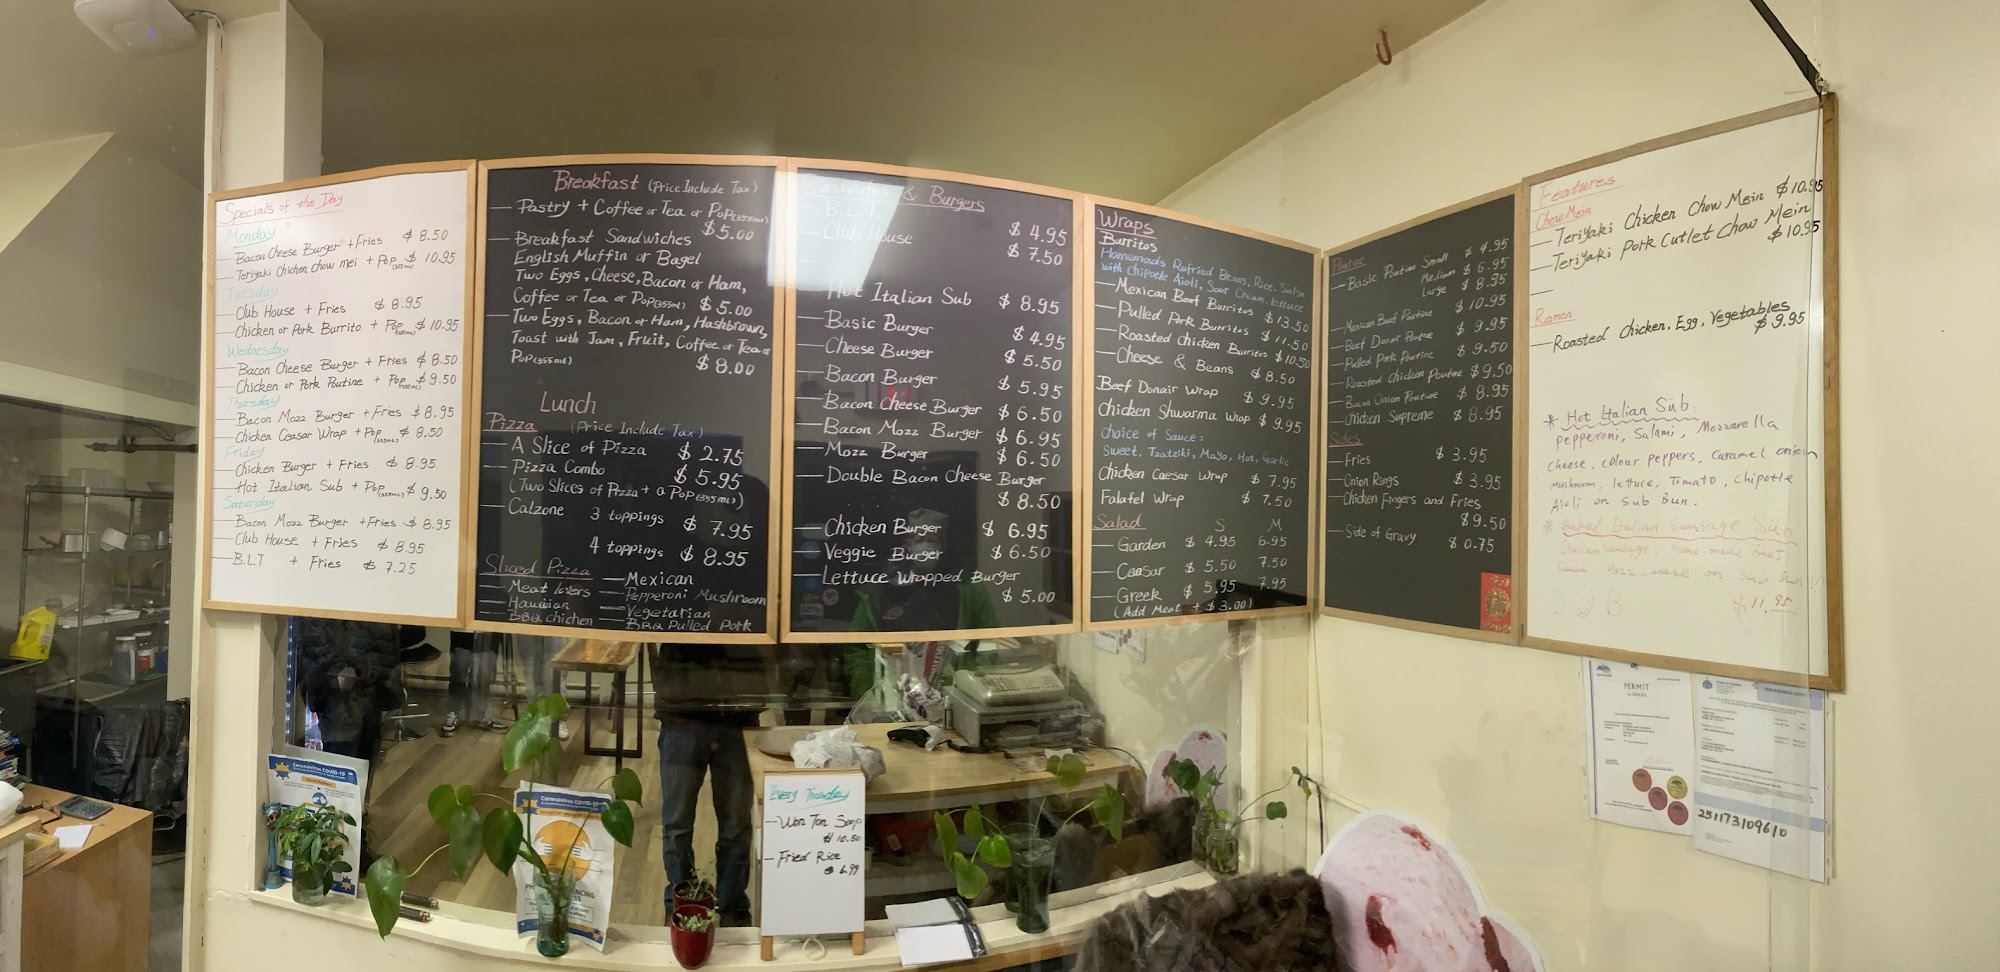 Specials of the Day
Monday
Bacon Cheese Burger + Fries $ 8.50
Teriyaki Chicken Chow mei + Pop (355mL) $ 10.95
Tuesday
Club House + Fries $ 8.95
Chicken or Pork Burrito + Pop (355mL) $ 10.95
Wednesday
Bacon Cheese Burger + Fries $ 8.50
Chicken or Pork Poutine + Pop (355mL) $ 9.50
Thursday
Bacon Mozz Burger + Fries $ 8.95
Chicken Ceasar Wrap + Pop (355mL) $ 8.50
Friday
Chicken Burger + Fries $ 8.95
Hot Italian Sub + Pop (355mL) $ 9.50
Saturday
Bacon Mozz Burger + Fries $ 8.95
Club House + Fries $ 8.95
B.L.T + Fries $ 7.25
Breakfast (Price Include Tax)
— Pastry + Coffee or Tea or Pop (355mL)
$ 5.00
— Breakfast Sandwiches
English Muffin or Bagel
Two Eggs, Cheese, Bacon or Ham,
Coffee or Tea or Pop (355mL) $ 5.00
— Two Eggs, Bacon or Ham, Hashbrown,
Toast with Jam, Fruit, Coffee or Tea or
Pop (355mL) $ 8.00
Lunch
Pizza (Price Include Tax)
— A Slice of Pizza $ 2.75
— Pizza Combo $ 5.95
(Two Slices of Pizza + a Pop (355mL))
— Calzone 3 toppings $ 7.95
4 toppings $ 8.95
Sliced Pizza
— Meat lovers — Mexican
— Hawaiian — Pepperoni Mushroom
— BBQ chicken — Vegetarian
— BBQ Pulled Pork
Sandwiches & Burgers
— B.L.T. $ 4.95
— Club House $ 7.50
— Hot Italian Sub $ 8.95
— Basic Burger $ 4.95
— Cheese Burger $ 5.50
— Bacon Burger $ 5.95
— Bacon Cheese Burger $ 6.50
— Bacon Mozz Burger $ 6.95
— Mozz Burger $ 6.50
— Double Bacon Cheese Burger
$ 8.50
— Chicken Burger $ 6.95
— Veggie Burger $ 6.50
— Lettuce Wrapped Burger
$ 5.00
Wraps
Burritos
Homemade Refried Beans, Rice, Salsa
with Chipotle Aioli, Sour Cream, lettuce
— Mexican Beef Burritos $ 13.50
— Pulled Pork Burritos $ 11.50
— Roasted Chicken Burritos $ 10.50
— Cheese & Beans $ 8.50
Beef Donair Wrap $ 9.95
Chicken Shwarma Wrap $ 9.95
Choice of Sauce:
Sweet, Tzatziki, Mayo, Hot, Garlic
Chicken Caesar Wrap $ 7.95
Falafel Wrap $ 7.50
Salad S M
— Garden $ 4.95 6.95
— Caesar $ 5.50 7.50
— Greek $ 5.95 7.95
(Add Meat + $ 3.00)
Poutine
— Basic Poutine Small $ 4.95
Medium $ 6.95
Large $ 8.95
— Mexican Beef Poutine $ 10.95
— Beef Donair Poutine $ 9.95
— Pulled Pork Poutine $ 9.50
— Roasted Chicken Poutine $ 9.50
— Bacon Onion Poutine $ 8.95
— Chicken Supreme $ 8.95
Sides
— Fries $ 3.95
— Onion Rings $ 3.95
— Chicken Fingers and Fries
$ 9.50
— Side of Gravy $ 0.75
Features
Chow Mein
— Teriyaki Chicken Chow Mein $ 10.95
— Teriyaki Pork Cutlet Chow Mein
$ 10.95
Ramen
— Roasted Chicken, Egg, Vegetables
$ 9.95
* Hot Italian Sub:
pepperoni, Salami, Mozzarella
cheese, colour peppers, caramel onion
mushroom, lettuce, Tomato, Chipotle
Aioli on Sub Bun.
* Baked Italian Sausage Sub
Italian Sausage, Home-made Beef
Sauce, Mozz cheese on Sub Bun
$ 11.95
Coronavirus COVID-19
Coronavirus COVID-19
Every Tuesday
— Won Ton Soup
$ 10.50
— Fried Rice
6.99
PERMIT
251173109610